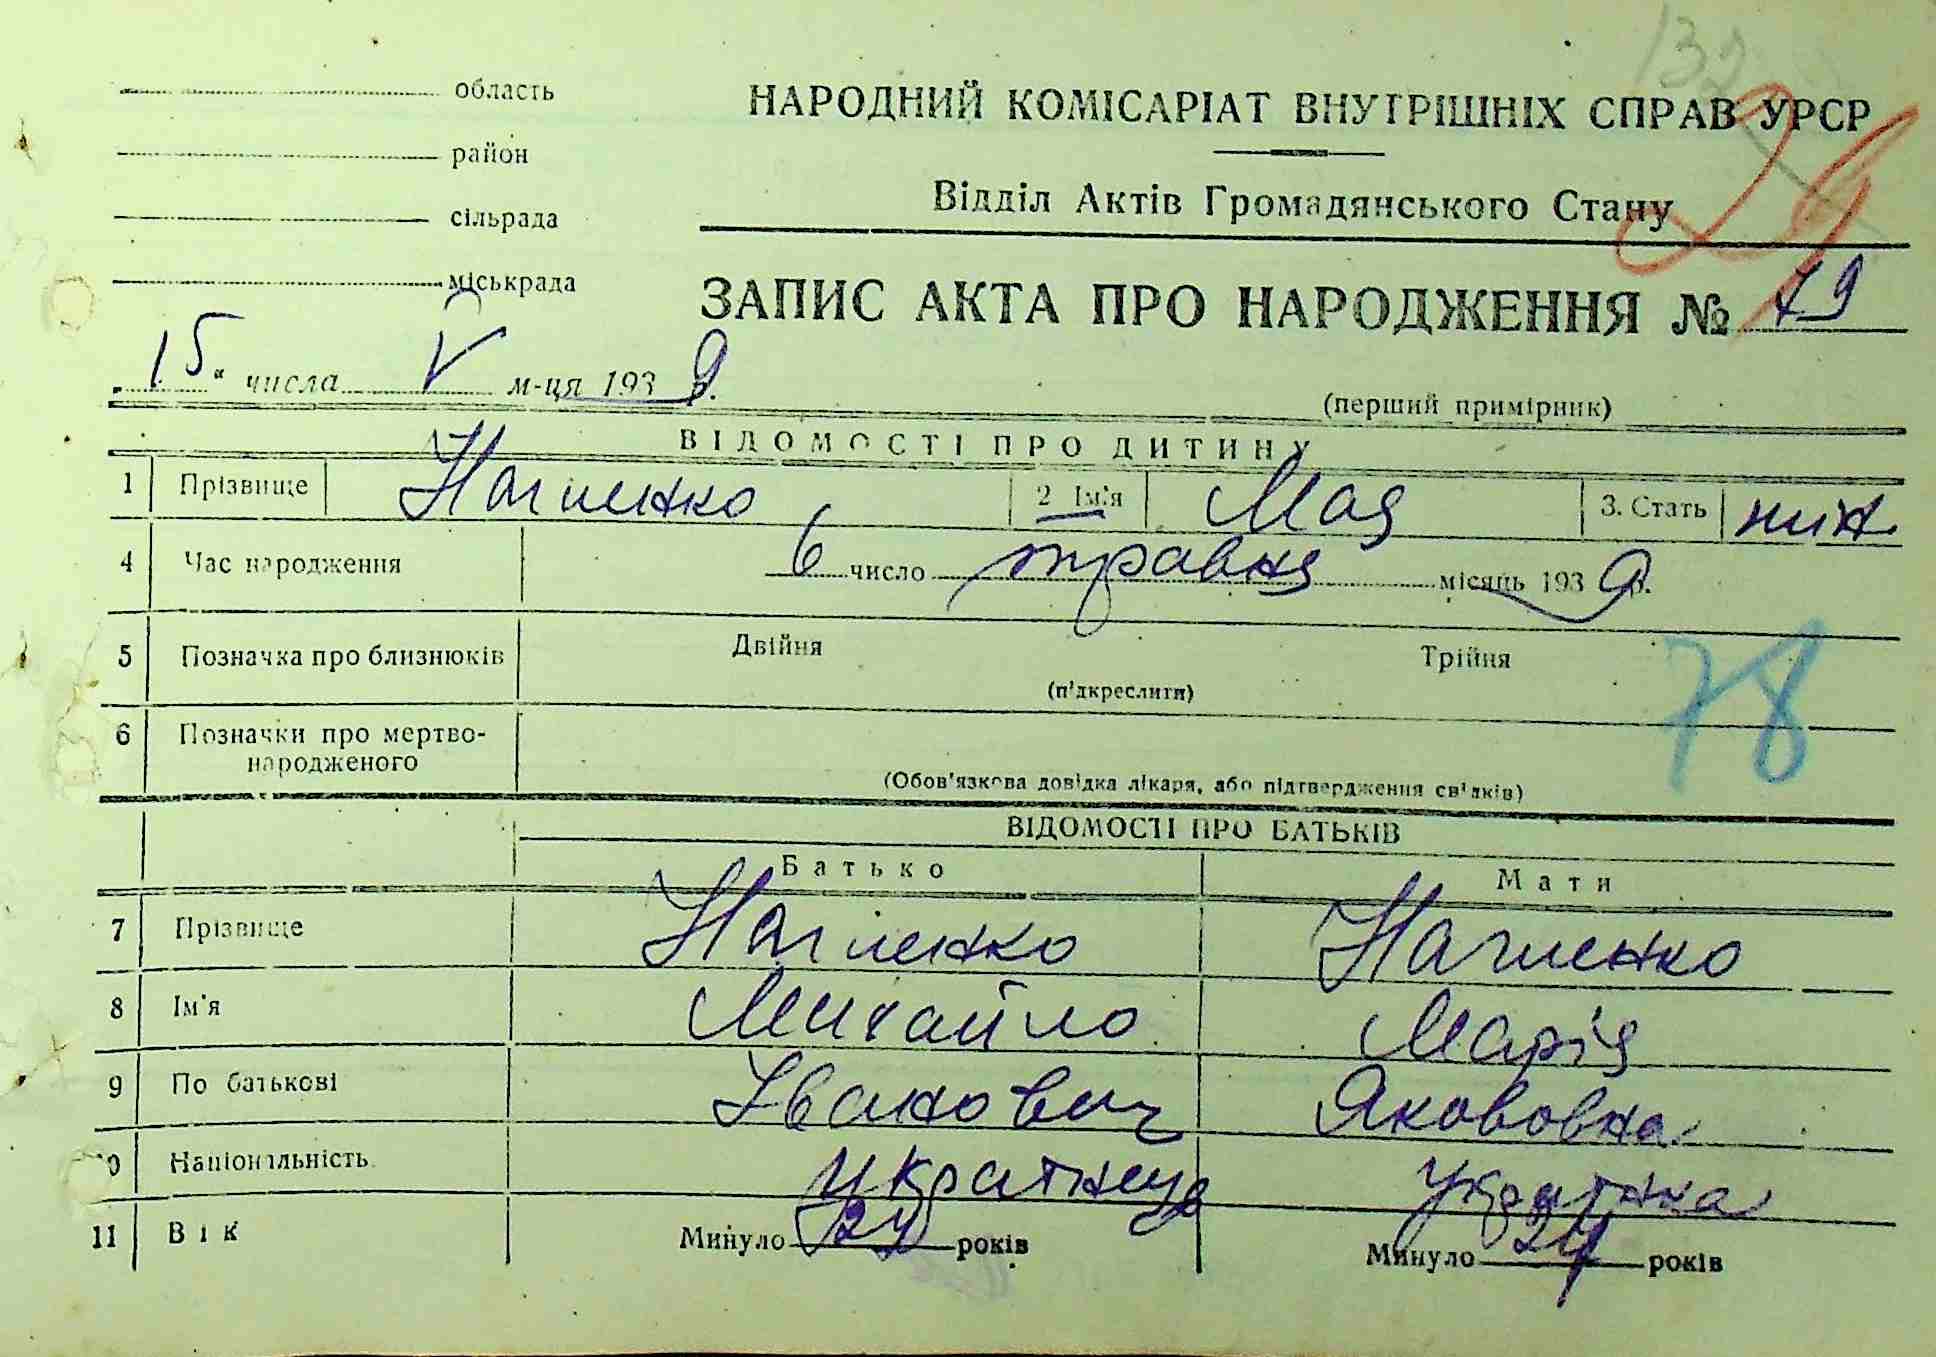 132
область
НАРОДНИЙ КОМІСАРІАТ ВНУТРІШНІХ СПРАВ УРСР
район
29
Відділ Актів Громадянського Стану
сільрада
міськрада
ЗАПИС АКТА ПРО НАРОДЖЕННЯ № 79
„15“ числа V м-ця 1939 р.
(перший примірник)
ВІДОМОСТІ ПРО ДИТИНУ
1 Прізвище Нагиенко 2 Ім'я Мая 3. Стать
4 Час народження 6 число травня місяць 1939 р.
5 Позначка про близнюків Двійня Трійня
(п'дкреслити)
78
6 Позначки про мертво-
народженого
(Обов'язкова довідка лікаря, або підтвердження св'дків)
ВІДОМОСТІ ПРО БАТЬКІВ
Батько Мати
7 Прізвище Нагиенко Нагиенко
8 Ім'я Михайло Марія
9 По батькові Іванович Якововна
10 Національність українець українка
11 Вік Минуло 24 років Минуло 24 років